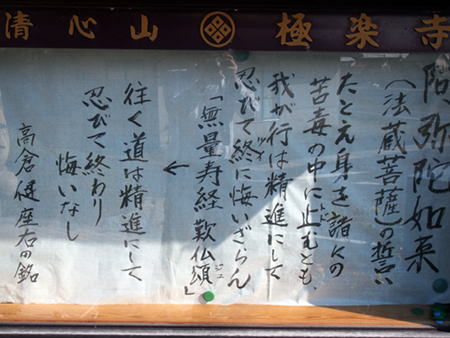 清心山 極楽寺
阿弥陀如来
(法蔵菩薩)の誓い
たとえ身を諸々の
苦毒の中に止るとも、
我が行は精進にして
忍びて終に悔いざらん
ツイ
「無量寿経 歎仏頌」
ジュ
↓
往く道は精進にして
忍びて終わり
悔いなし
高倉健座右の銘